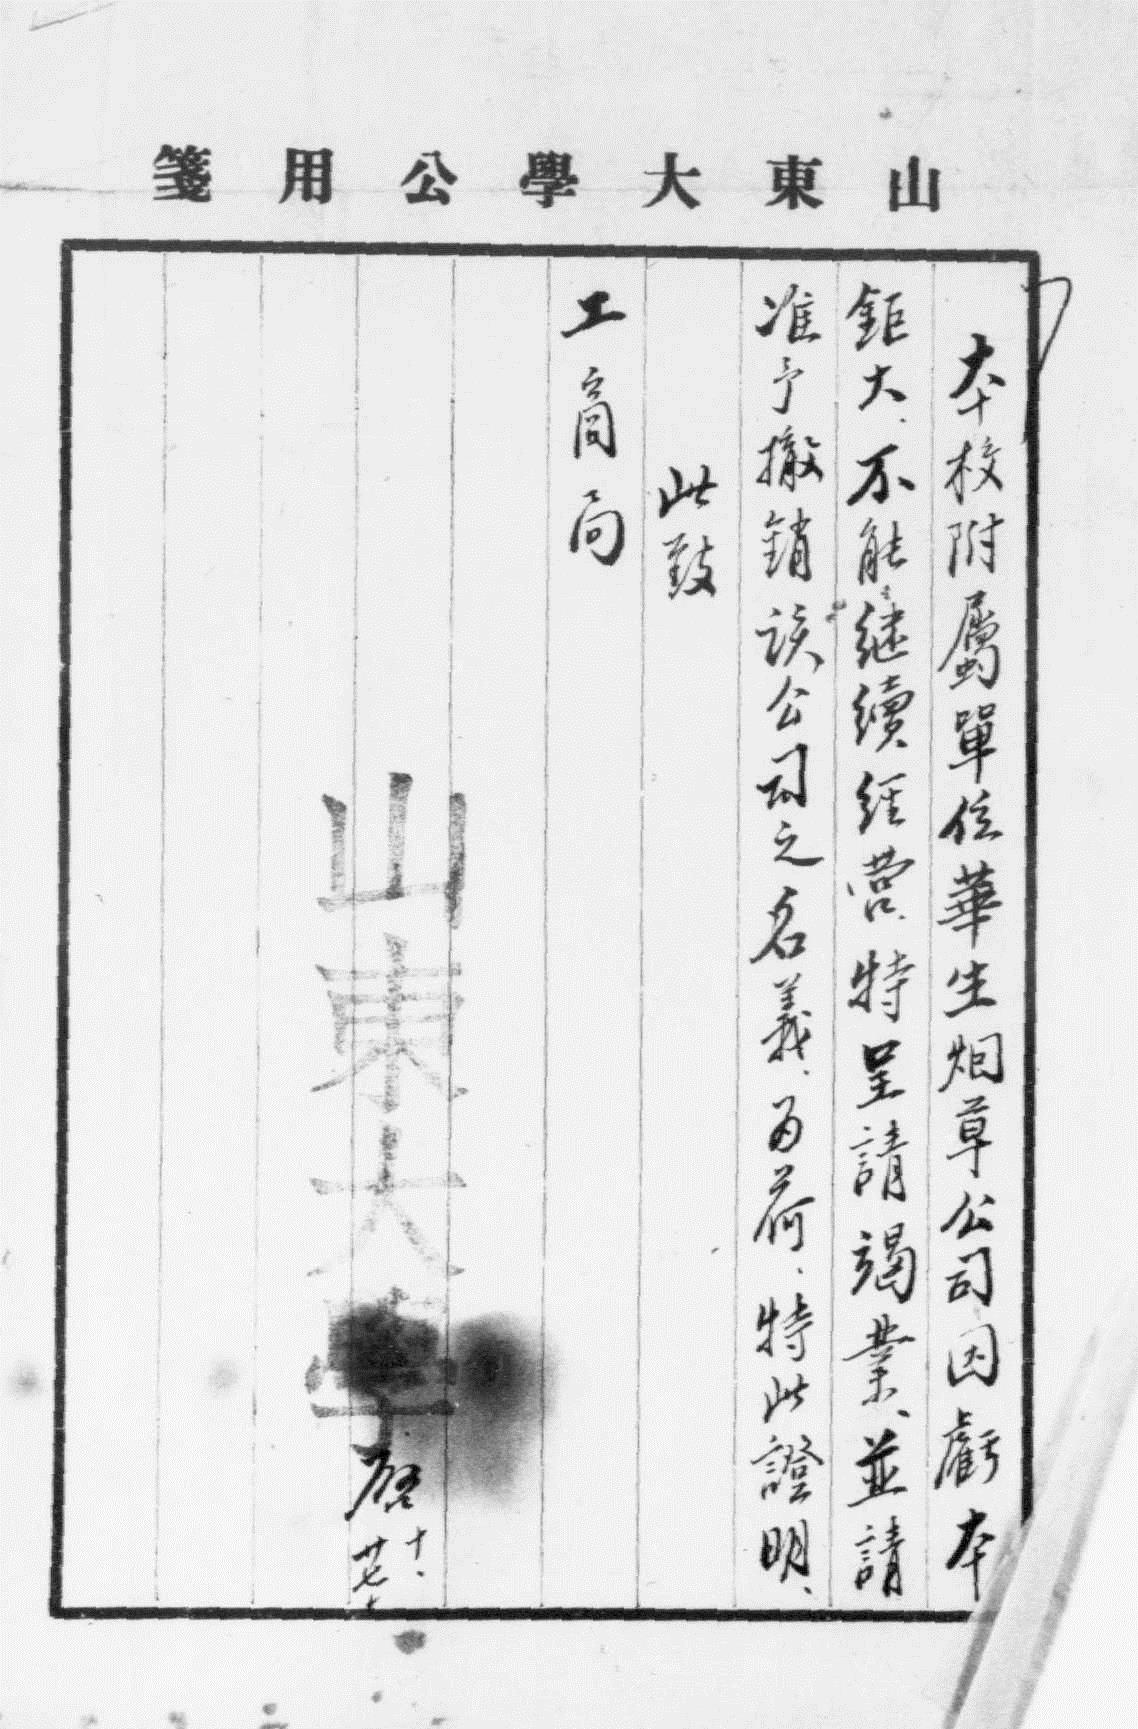 山東大學公用箋
本校附屬單位華生烟草公司因虧本
鉅大、不能继續经营、特呈請竭業、並請
准予撤銷該公司之名義、為荷、特此證明、
此致
工商局
山東大學啓
十、廿七、